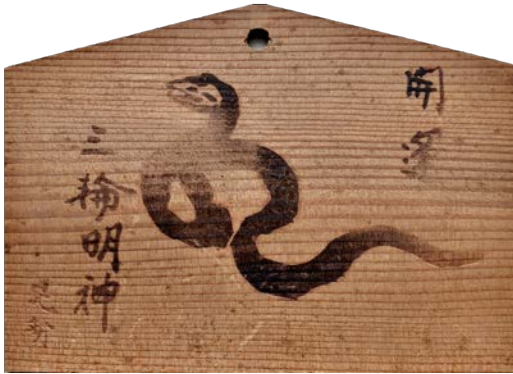 開運
三輪明神